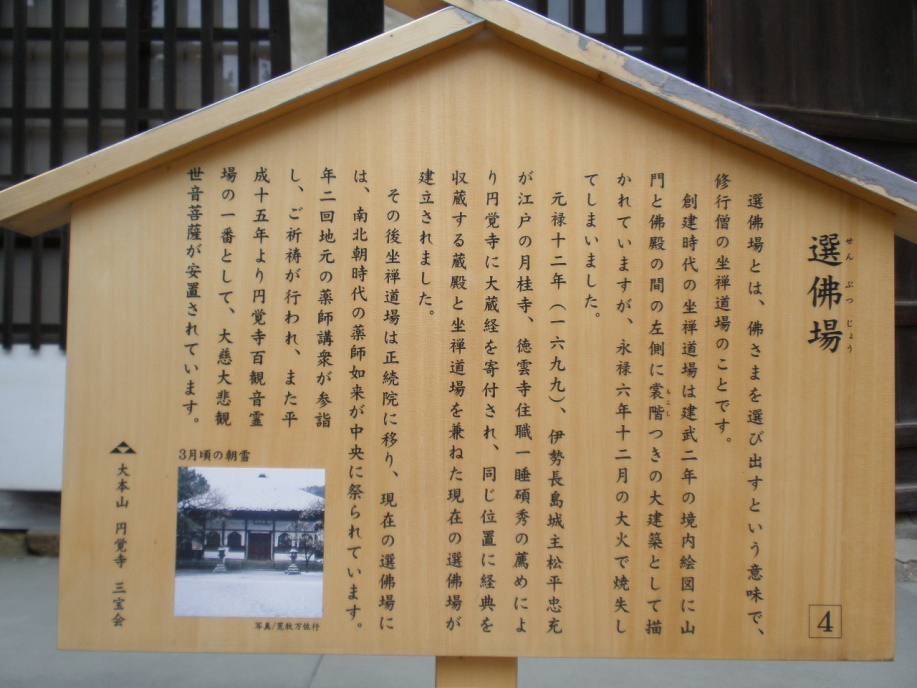 選佛場
せんぶつじょう
選佛場とは、佛さまを選び出すという意味で、
修行僧の坐禅道場のことです。
創建時代の坐禅道場は建武二年の境内絵図に山
門と佛殿の間の左側に裳階つきの大建築として描
もこし
かれていますが、永禄六年十二月の大火で焼失し
てしまいました。
元禄十二年（一六九九）、伊勢長島城主松平忠充
が江戸の月桂寺、徳雲寺住職一睡碩秀の薦めによ
り円覚寺に大蔵経を寄付され、同じ位置に経典を
収蔵する蔵殿と坐禅道場を兼ねた現在の選佛場が
建立されました。
その後坐禅道場は正続院に移り、現在の選佛場に
は、南北朝時代の薬師如来が中央に祭られています。
年二回地元の薬師講衆が参詣
し、ご祈祷が行われ、また平
成十五年より円覚寺百観音霊
場の一番として、大慈大悲観
世音菩薩が安置されています。
3月頃の朝雪
写真/荒牧万佐行
大本山 円覚寺 三宝会
4